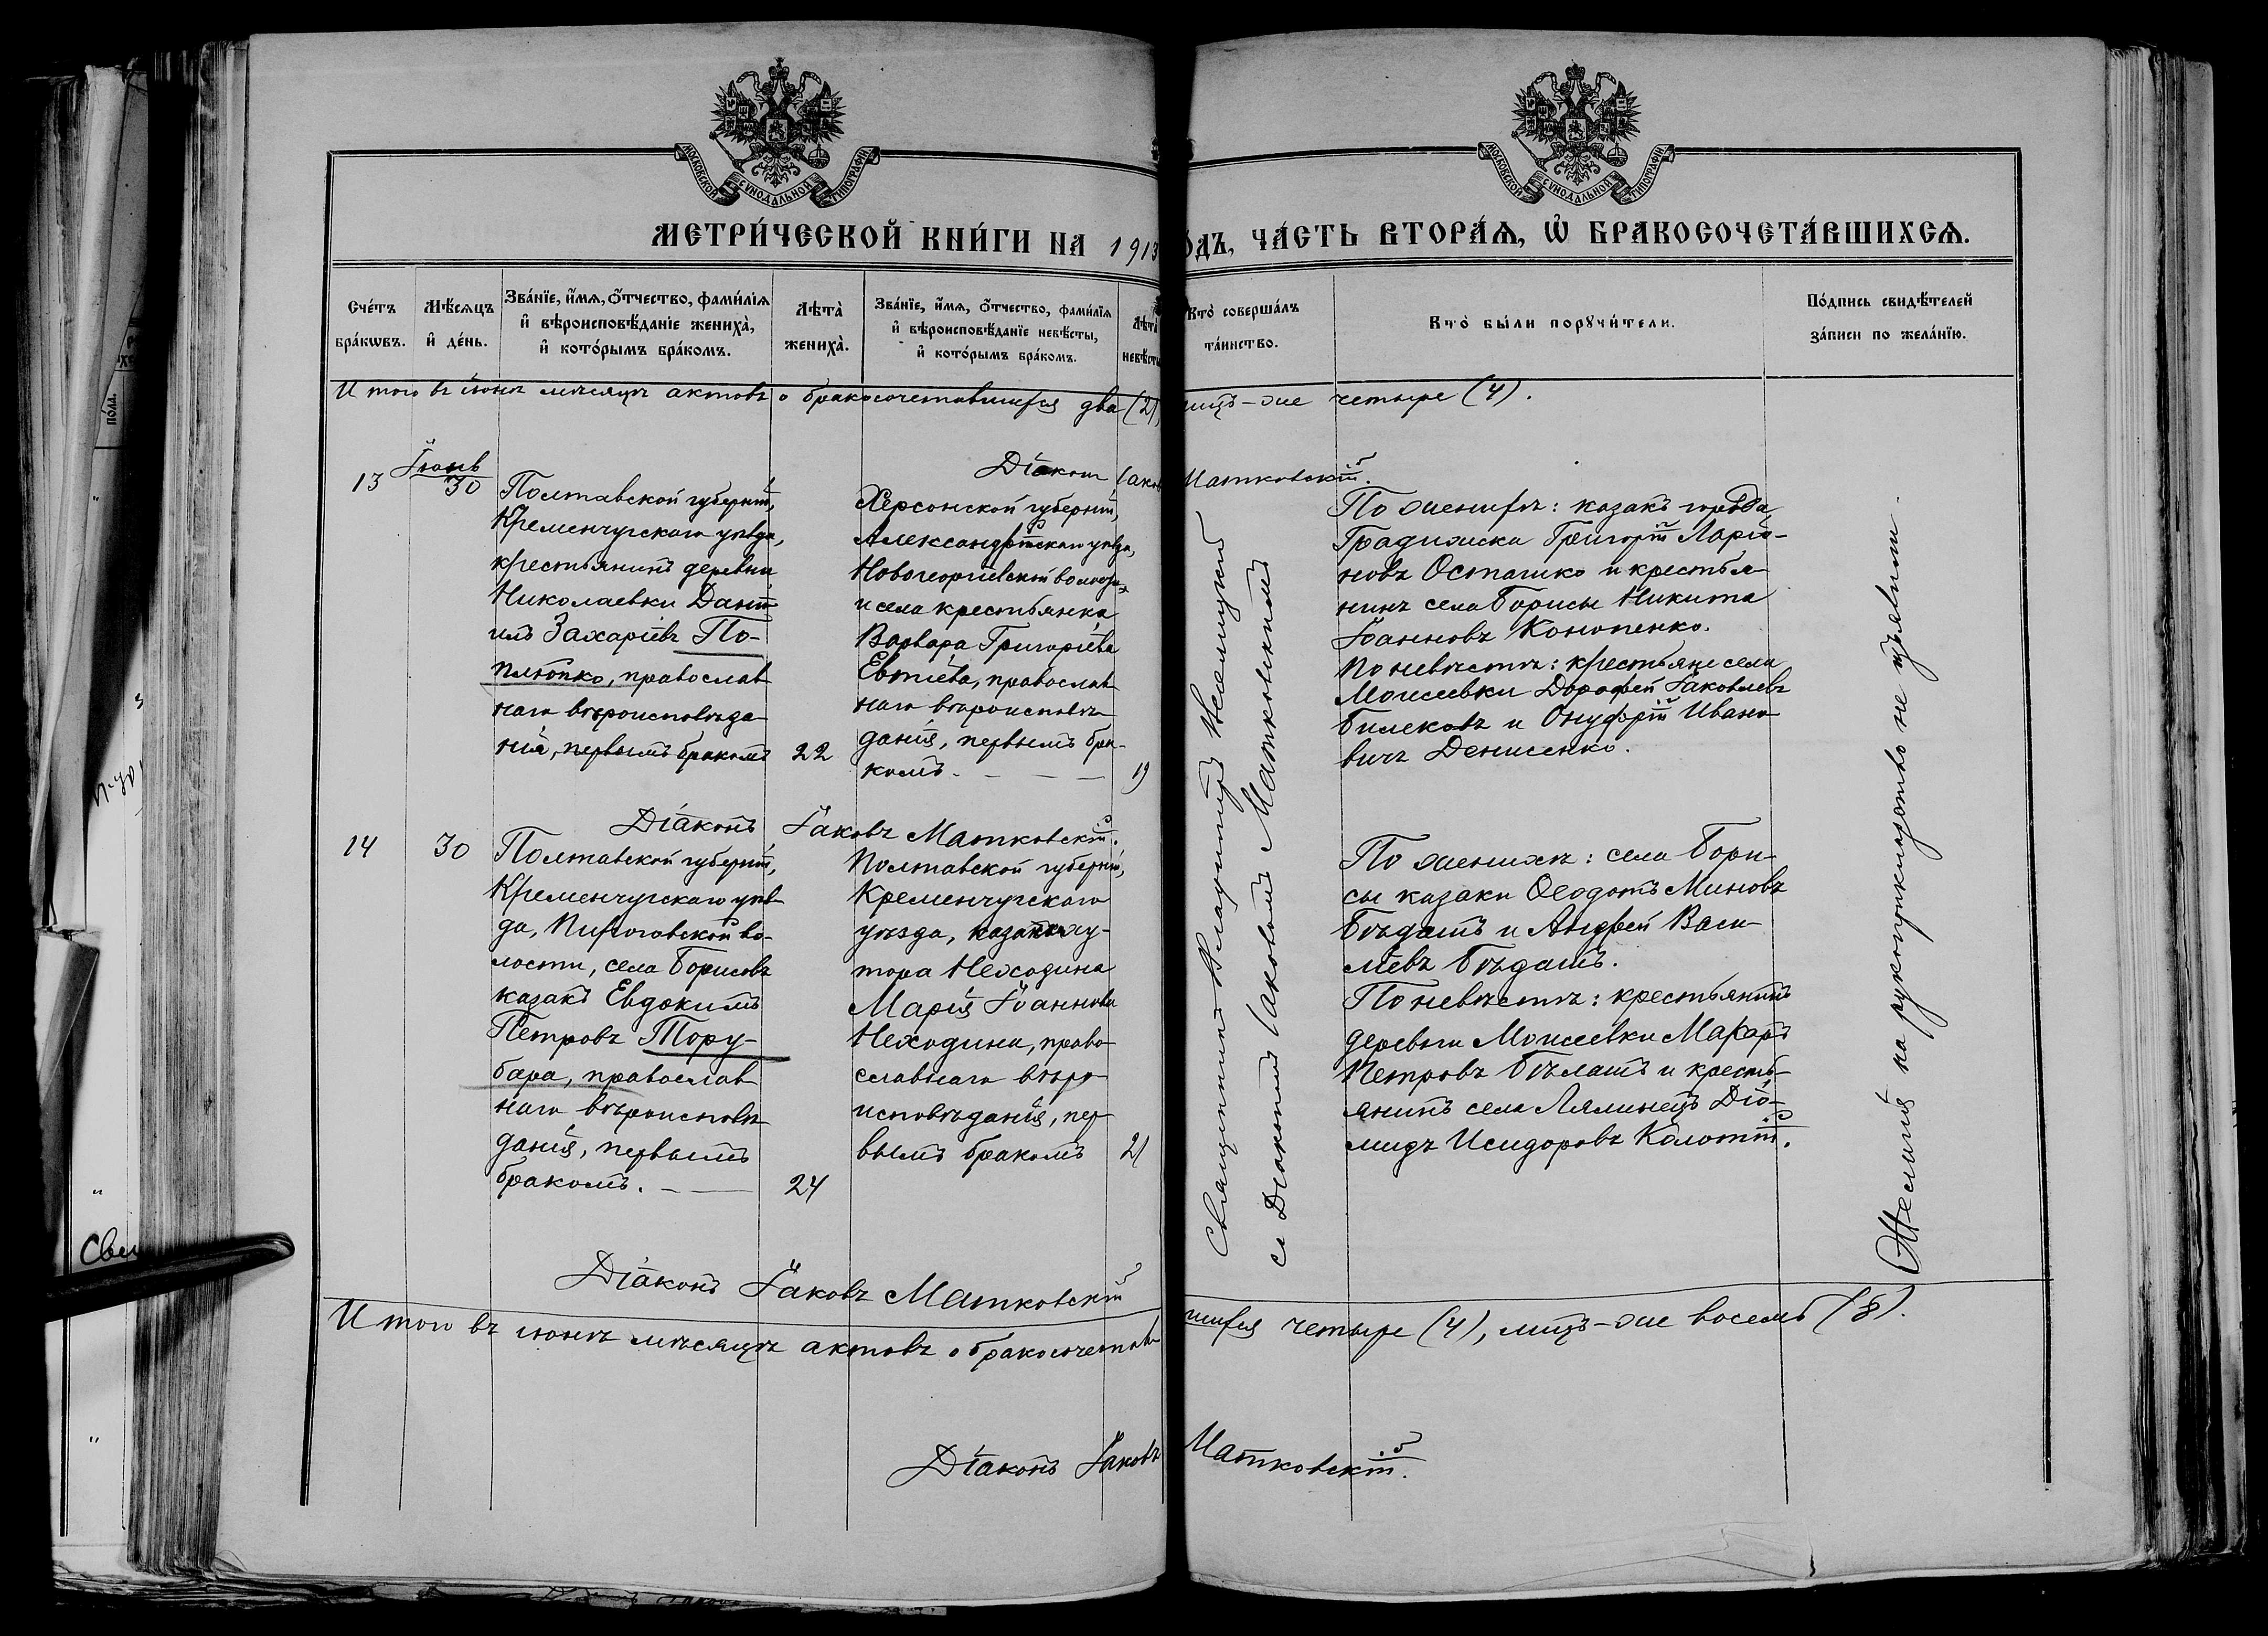 МОСКОВСКОЙ СУНОДАЛЬНОЙ ТИПОГРАФІИ
МОСКОВСКОЙ СУНОДАЛЬНОЙ ТИПОГРАФІИ
МЕТРИ́ЧЕСКОЙ КНИ́ГИ НА 1913
О́ДЪ, ЧА́СТЬ ВТОРА́Я, Ѡ БРАКОСОЧЕТА́ВШИХСЯ.
Сче́тъ
бра́кωвъ.
Мѣ́сяцъ
и҆ де́нь.
Зва́нїе, и҆́мя, ѻ҆́тчество, фами́лїя
и҆ вѣроисповѣ́данїе жениха̀,
и҆ кото́рымъ бра́комъ.
Лѣта̀
жениха̀.
Зва́нїе, и҆́мя, ѻ҆́тчество, фами́лїя
и҆ вѣроисповѣ́данїе невѣ́сты,
и҆ кото́рымъ бра́комъ.
Лѣта̀
невѣ́сты
Кто̀ соверша́лъ
та́инство.
Кто̀ бы́ли порꙋчи́тели.
По́дпись свидѣ́телей
за́писи по жела́нїю.
Итого въ іюнѣ мѣсяцѣ актовъ о бракосочетавшихся два (2),
лицъ-же четыре (4).
Діаконъ Іаковъ
Матковскій.
13
Іюнь
30
Полтавской губерніи,
Кременчугскаго уѣзда,
крестьянинъ деревни
Николаевки Дані-
илъ Захаріевъ По-
плюпко, православ-
наго вѣроисповѣда-
нія, первымъ бракомъ
22
Херсонской губерніи,
Александрійскаго уѣзда,
Новогеоргіевской волости
и села крестьянка
Варвара Григоріева
Евтіева, православ-
наго вѣроисповѣ-
данія, первымъ бра-
комъ.
19
По женихѣ: казакъ города
Градижска Григорій Ларіо-
новъ Осташко и крестья-
нинъ села Борисы Никита
Іоанновъ Конопенко.
По невѣстѣ: крестьяне села
Моисеевки Дорофей Іаковлевъ
Билековъ и Онуфрій Ивано-
вичъ Денисенко.
Діаконъ Іаковъ Матковскій.
14
30
Полтавской губерніи,
Кременчугскаго уѣз-
да, Пироговской во-
лости, села Борисовъ
казакъ Евдокимъ
Петровъ Тору-
бара, православ-
наго вѣроисповѣ-
данія, первымъ
бракомъ.
24
Полтавской губерніи,
Кременчугскаго
уѣзда, казачка ху-
тора Неходина
Марія Іоаннова
Неходина, право-
славнаго вѣро-
исповѣданія, пер-
вымъ бракомъ
21
По женихѣ: села Бори-
сы казаки Ѳеодотъ Миновъ
Бѣдашъ и Андрей Васи-
ліевъ Бѣдашъ.
По невѣстѣ: крестьянинъ
деревни Моисеевки Макаръ
Петровъ Бѣлашъ и кресть-
янинъ села Лялинецъ Діо-
мидъ Исидоровъ Колотій.
Священникъ
съ Діакономъ Іаковомъ Матковскимъ
Желанія на рукоприкладство не изъявили.
Діаконъ Іаковъ Матковскій
Итого въ іюнѣ мѣсяцѣ актовъ о бракосочетав-
шихся четыре (4), лицъ-же восемь (8).
Діаконъ Іаковъ
Матковскій.